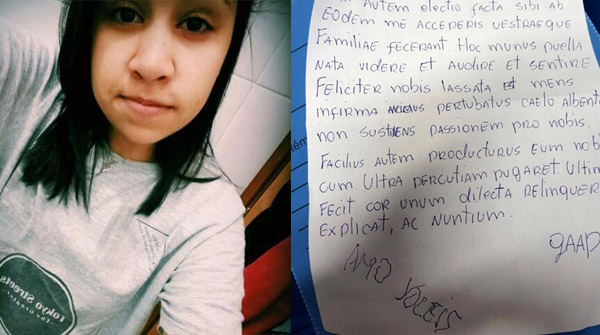 Autem electio facta sibi ab
Eodem me acceperis vestraeque
Familiae fecerant. Hoc munus puella
nata videre et audire et sentire
Feliciter nobis lassata et mens
infirma pertubatus caelo albente
non passionem pro nobis.
Facilius autem producturus eum nob
cum ultra percutiam pugaret. Ultim
Fecit cor unum dilecta relinquere
explicat, ac nuntium.
gaap
Tokyo Streets